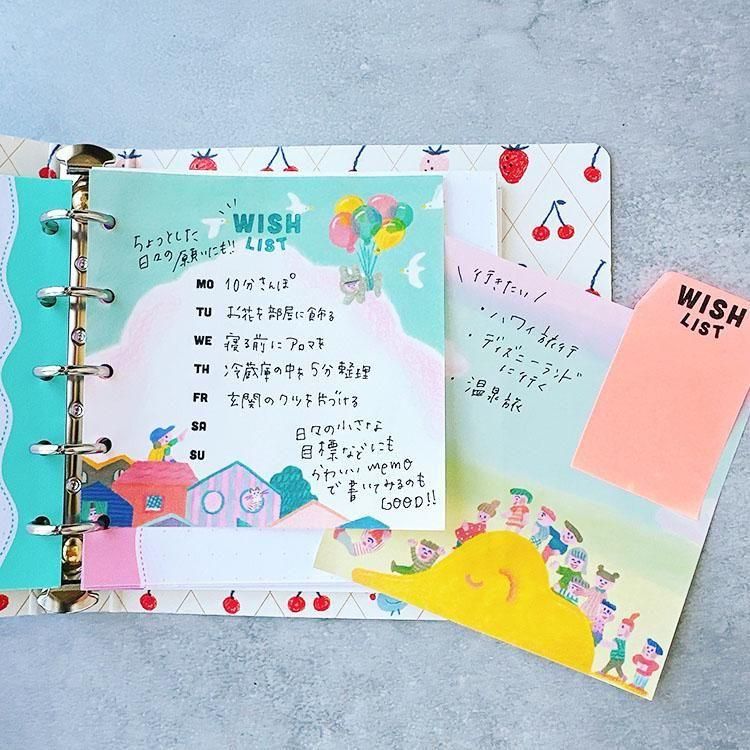 ちょっとした
日々の願いにも!!
WISH
LIST
MO 10分さんぽ
TU お花を部屋に飾る
WE 寝る前にアロマを
TH 冷蔵庫の中を5分整理
FR 玄関のクツを片づける
SA
SU
日々の小さな
目標などにも
かわいいmemo
で書いてみるのも
GOOD!!
\行きたい/
・ハワイ旅行
・ディズニーランド
に行く
・温泉旅
WISH
LIST